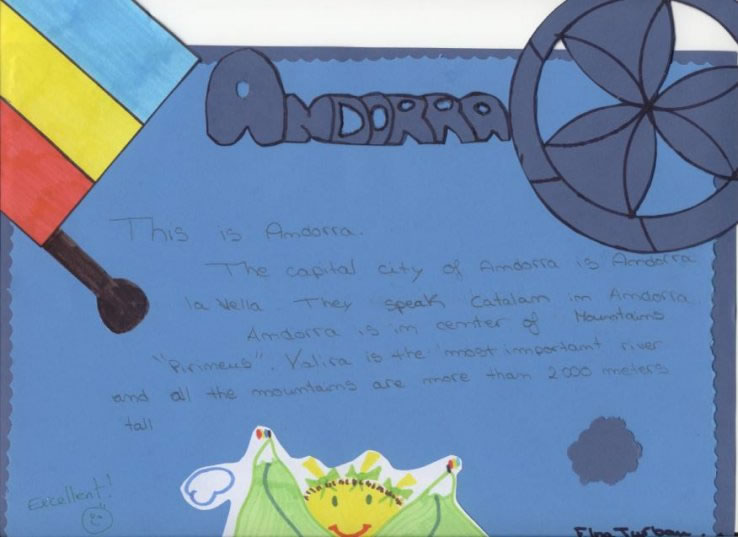 ANDORRA
This is Andorra.
The capital city of Andorra is Andorra
la Vella They speak Catalan in Andorra
Andorra is in center of Mountains
"Pirineus". Valira is the most important river
and all the mountains are more than 2000 meters
tall
Excellent!